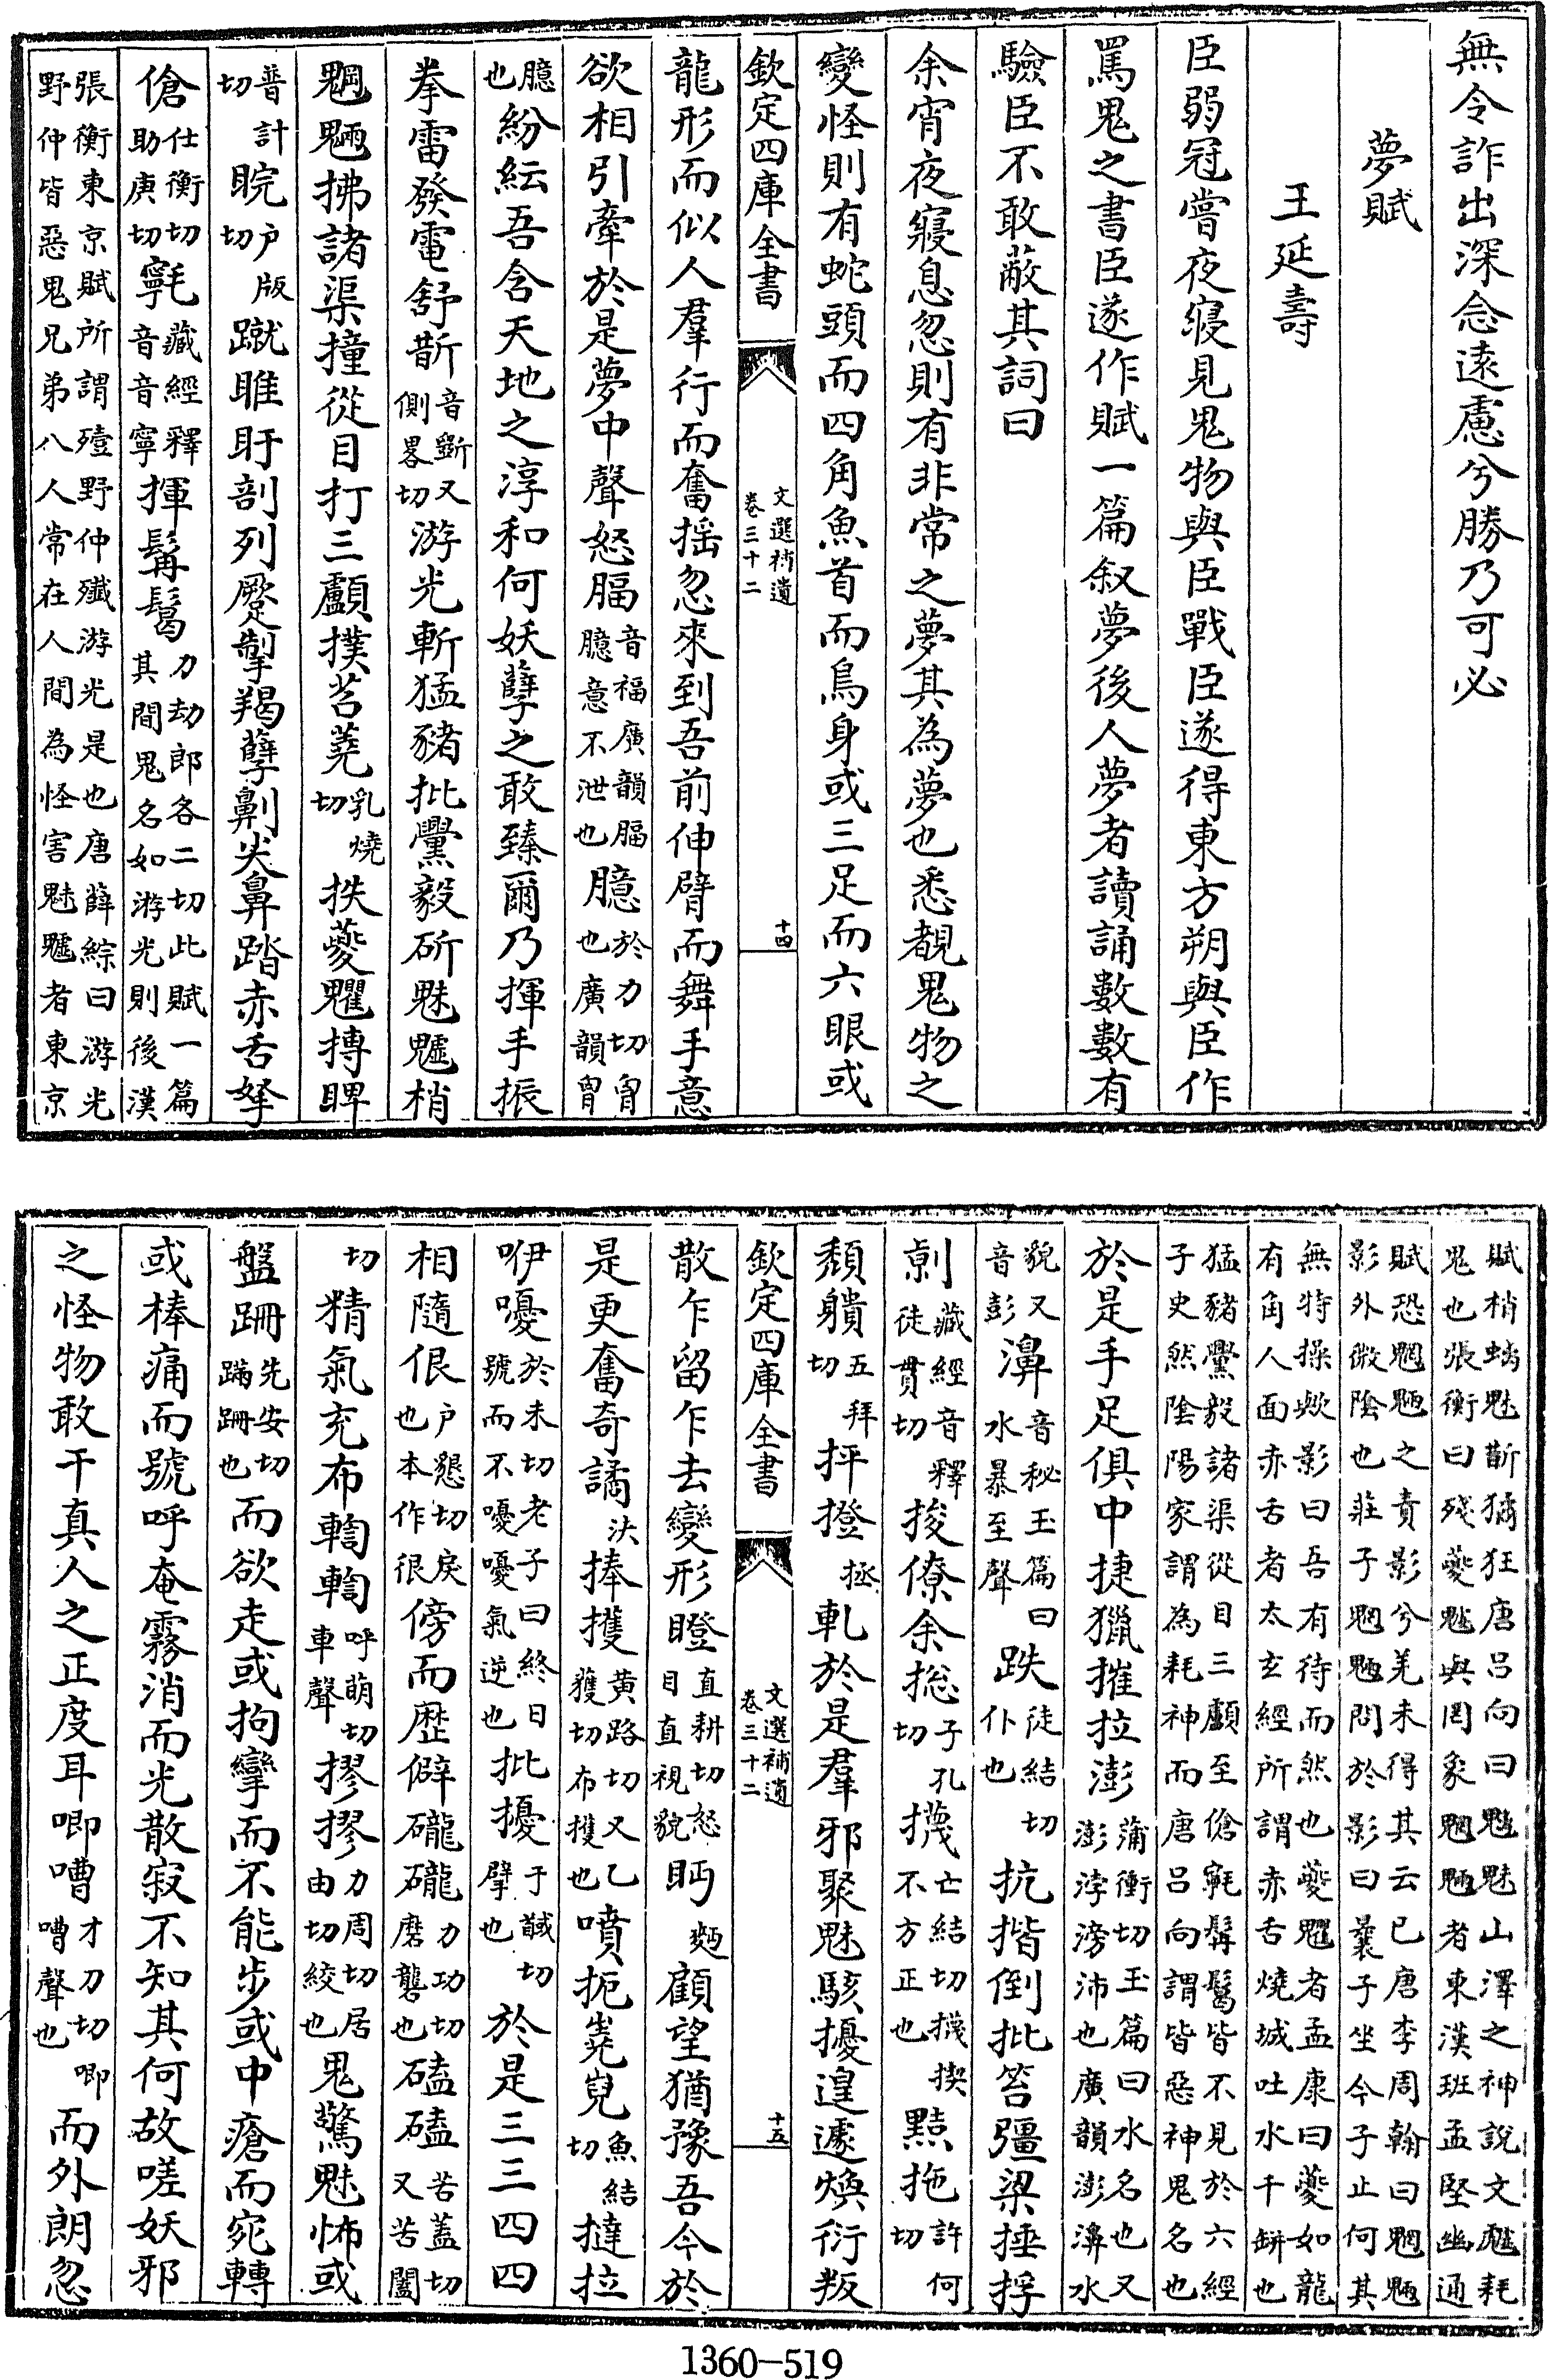 無令詐出深念遠慮兮勝乃可必
夢賦
王延壽
臣弱冠嘗夜寢見鬼物與臣戰臣遂得東方朔與臣作
罵鬼之書臣遂作賦一篇叙夢後人夢者讀誦數數有
驗臣不敢蔽其詞曰
余宵夜寢息忽則有非常之夢其為夢也悉覩鬼物之
變怪則有蛇頭而四角魚首而鳥身或三足而六眼或
欽定四庫全書 文選補遺 卷三十二 十四
龍形而似人羣行而奮揺忽來到吾前伸臂而舞手意
欲相引牽於是夢中聲怒腷音福廣韻腷臆意不泄也臆於力切胷也廣韻胷
臆也紛紜吾含天地之淳和何妖孽之敢臻爾乃揮手振
拳雷發電舒斮音斲又側畧切游光斬猛豬批鷽毅斫魅魖梢
魍魎拂諸渠撞從目打三顱撲苕蕘乳燒切抶夔魖搏睥
普計切睆户版切蹴睢盱剖列蹷掣羯孽劓尖鼻踏赤舌拏
傖仕衡切助庚切㲰藏經釋音音寧揮髯鬄力刼郎各二切此賦一篇其間鬼名如游光則後漢
張衡東京賦所謂殪野仲殲游光是也唐薛綜曰游光野仲皆惡鬼兄弟八人常在人間為怪害魅魖者東京
賦梢螭魅斮獝狂唐呂向曰魑魅山澤之神說文魖耗鬼也張衡曰殘夔魖與罔象魍魎者東漢班孟堅幽通
賦恐魍魎之責影兮羌未得其云已唐李周翰曰魍魎影外微陰也莊子魍魎問於影曰曩子坐今子止何其
無特操歟影曰吾有待而然也夔魖者孟康曰夔如龍有角人面赤舌者太玄經所謂赤舌燒城吐水于缾也
猛豬鷽毅諸渠從目三顱至傖㲰髯鬄皆不見於六經子史然陰陽家謂為耗神而唐呂向謂皆惡神鬼名也
於是手足俱中捷獵摧拉澎蒲衡切玉篇曰水名也又澎浡滂沛也廣韻澎濞水
貌又音彭濞音秘玉篇曰水暴至聲跌徒結切仆也抗揩倒批笞彊梁捶捋
㓻藏經音釋徒貫切捘僚余捴子孔切㩢亡結切㩢揳不方正也㸃拖許何切
頹䫥五拜切抨撜拯軋於是羣邪聚魅駭擾遑遽煥衍叛
欽定四庫全書 文選補遺 卷三十二 十五
散乍留乍去變形瞪直耕切怒目直視貌眄麪顧望猶豫吾今於
是更奮奇譎决捧擭黄路切又乙獲切布擭也噴扼嶤兒魚結切撻拉
咿嚘於未切老子曰終日號而不嚘嚘氣逆也批擾于馘切擘也於是三三四四
相隨佷户懇切戾也本作很傍而歴僻礲礲力功切磨礱也磕磕苦蓋切又苦闔
切精氣充布輷輷呼萌切車聲摎摎力周切居由切絞也鬼驚魅怖或
盤跚先安切蹣跚也而欲走或拘攣而不能步或中瘡而宛轉
或棒痛而號呼奄霧消而光散寂不知其何故嗟妖邪
之怪物敢干真人之正度耳唧嘈才刀切唧嘈聲也而外朗忽
1360-519